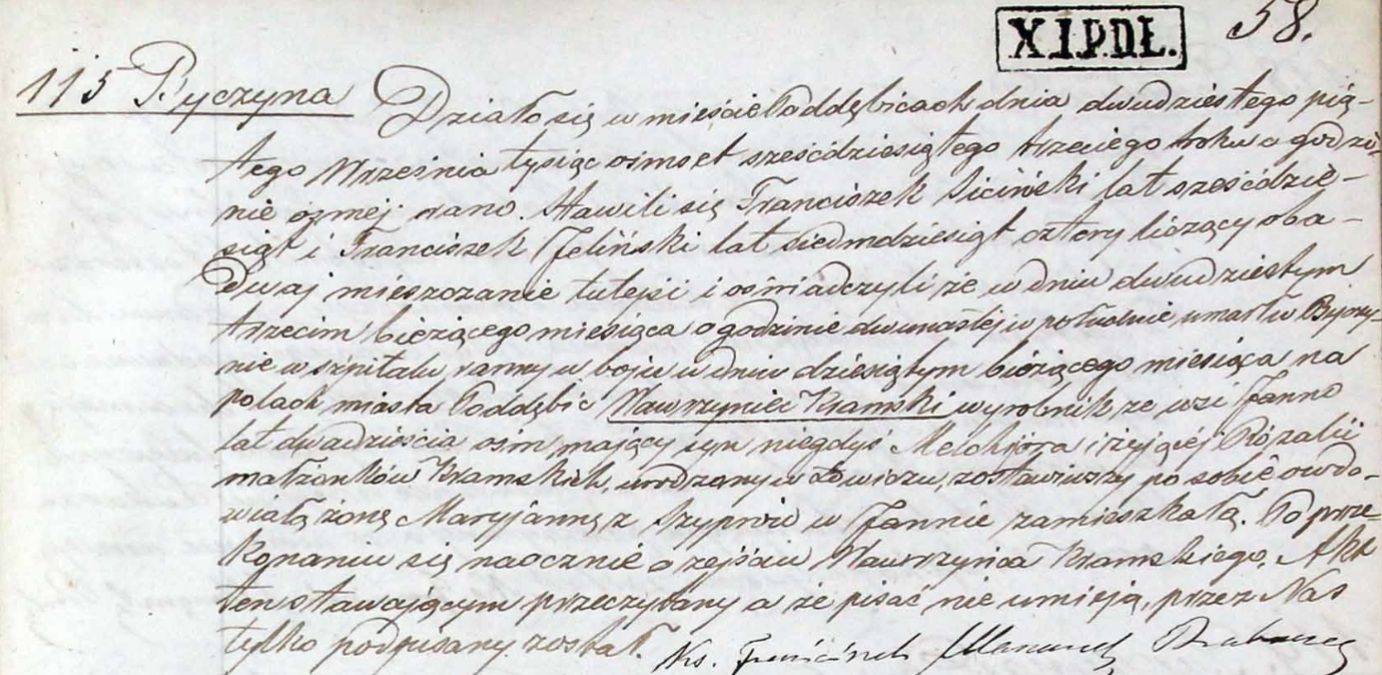 X.I.P.D.Ł. 58.
115 Byczyna Działo się w mieście Poddębicach dnia dwudziestego pią-
tego Września tysiąc ośmset sześćdziesiątego trzeciego roku o godzi-
nie ozmej rano. Stawili się Franciszek Siciński lat sześćdzie-
siąt i Franciszek Jeliński lat siedmdziesiąt cztery liczący oba-
dwaj mieszczanie tutejsi i oświadczyli że w dniu dwudziestym
trzecim bieżącego miesiąca o godzinie dwunastej w południe umarł w Byczy-
nie w szpitalu ranny w boju w dniu dziesiątym bieżącego miesiąca na
polach miasta Poddębic Wawrzyniec Kramski wyrobnik ze wsi Janno
lat dwadzieścia ośm mający syn niegdyś Melchiora i żyjącej Rozalii
małżonków Kramskich, urodzony w Łowiczu, zostawiwszy po sobie owdo-
wiałą żonę Maryjannę z Szyprów w Jannie zamieszkałą. Po prze-
konaniu się naocznie o zejściu Wawrzyńca Kramskiego, Akt
ten stawającym przeczytany a że pisać nie umieją, przez Nas
tylko podpisany został. Ks.